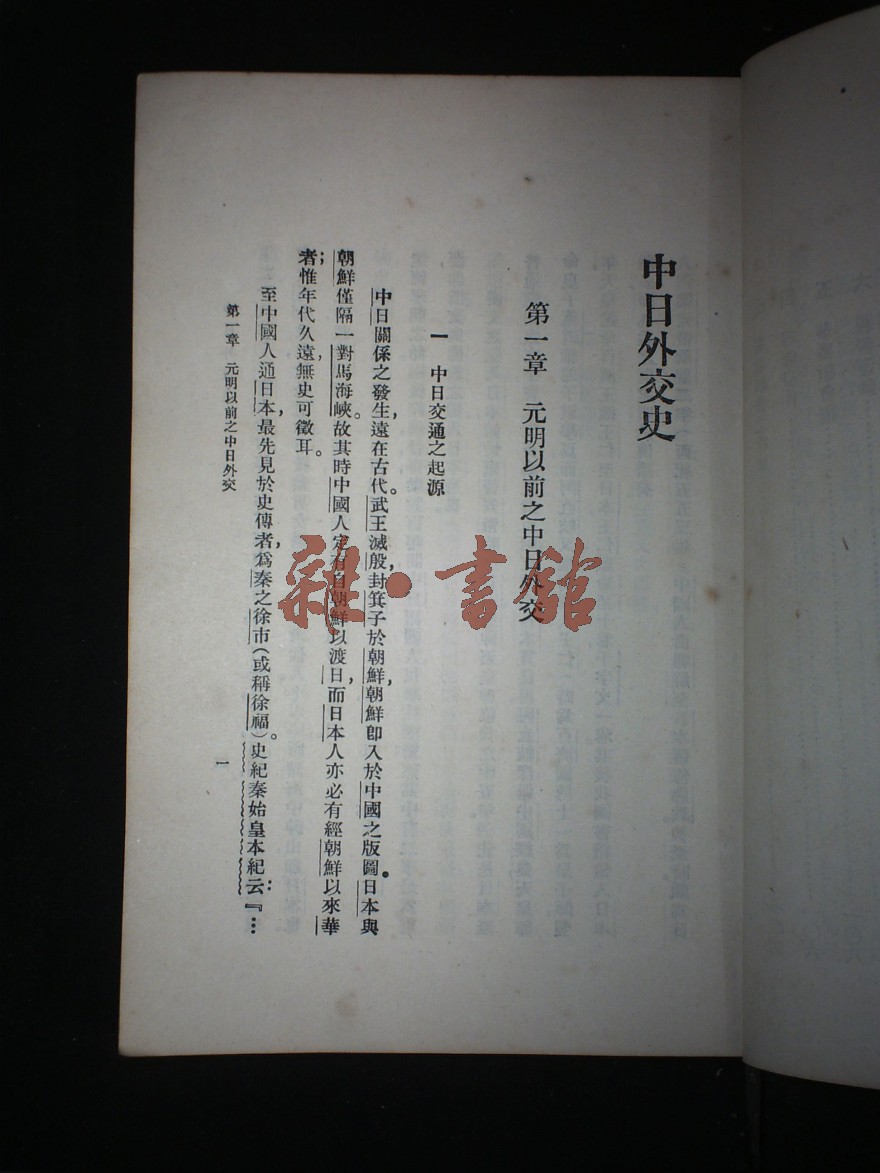 中日外交史
第一章　元明以前之中日外交
一　中日交通之起源
中日關係之發生，遠在古代。武王滅殷，封箕子於朝鮮，朝鮮卽入於中國之版圖。日本與
朝鮮僅隔一對馬海峽。故其時中國人定有自朝鮮以渡日，而日本人亦必有經朝鮮以來華
者；惟年代久遠，無史可徵耳。
至中國人通日本，最先見於史傳者，爲秦之徐市（或稱徐福）。史紀秦始皇本紀云：『…
第一章　元明以前之中日外交
一
雜·書館